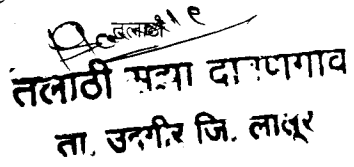 तलाठी
तलाठी सज्जा दावणगाव
ता. उदगीर जि. लातूर